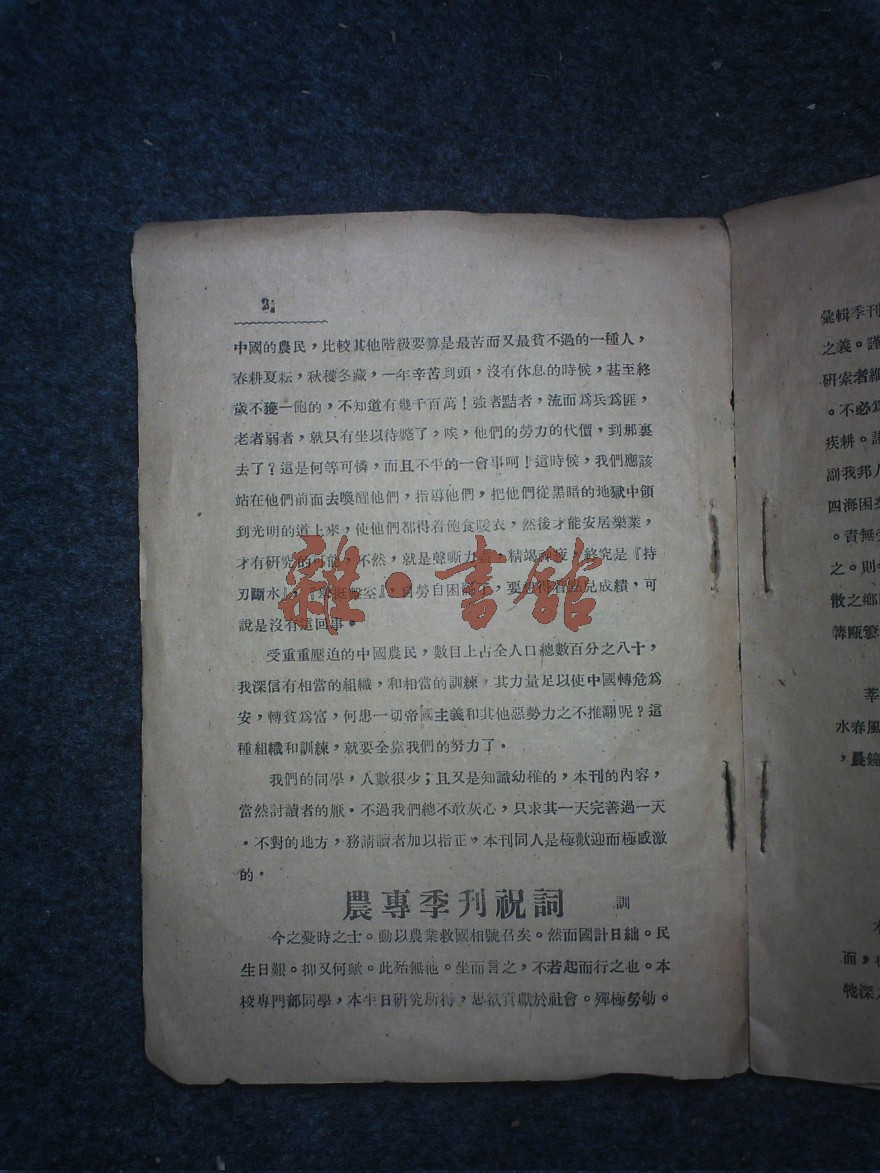 2
中國的農民，比較其他階級要算是最苦而又最貧不過的一種人，
春耕夏耘，秋穫冬藏，一年辛苦到頭，沒有休息的時候，甚至終
歲不獲一飽的，不知道有幾千百萬！強者黠者，流而爲兵爲匪，
老者弱者，就只有坐以待斃了，唉，他們的勞力的代價，到那裏
去了？這是何等可憐，而且不平的一會事呵！這時候，我們應該
站在他們前面去喚醒他們，指導他們，把他們從黑暗的地獄中領
到光明的道上來，使他們都得着飽食暖衣，然後才能安居樂業，
才有研究的可能，不然，就是聲嘶力盡，精竭神疲，終究是『持
刃斷水』，擊空』，自勞自困，要想得着點兒成績，可
說是沒有這回事。
受重重壓迫的中國農民，數目上占全人口總數百分之八十，
我深信有相當的組織，和相當的訓練，其力量足以使中國轉危爲
安，轉貧爲富，何患一切帝國主義和其他惡勢力之不推翻呢？這
種組織和訓練，就要全靠我們的努力了。
我們的同學，人數很少；且又是知識幼稚的，本刊的內容，
當然討讀者的厭。不過我們總不敢灰心，只求其一天完善過一天
。不對的地方，務請讀者加以指正，本刊同人是極歡迎而極感激
的。
農專季刊祝詞 訓
今之憂時之士。動以農業救國相號召矣。然而國計日絀。民
生日艱。抑又何歟。此殆無他。坐而言之，不若起而行之也。本
校專門部同學，本平日研究所得，思欲貢獻於社會。殫極勞劬。
雜·書館
彙輯季刊
之義。謹
研索者
。不必爲
疾耕。
副我邦人
四海困
。責無
之。則
散之鄉
篝甌窶
莘
水春風
，晨鐘
本
面，
牠深